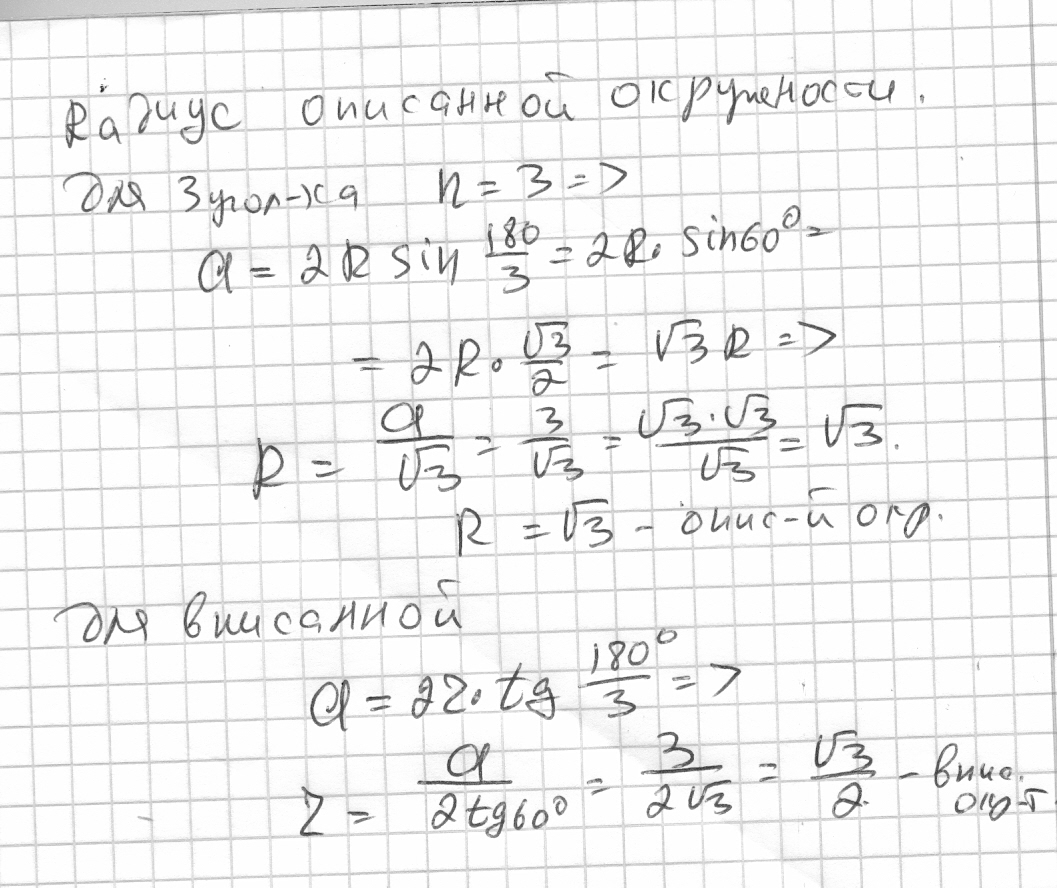 Радиус описанной окружености.
для 3угол-ка n = 3 =>
a = 2R sin 180/3 = 2R · sin60° =
= 2R · √3/2 = √3 R =>
R = a/√3 = 3/√3 = √3·√3/√3 = √3.
R = √3 - опис-й окр.
для вписанной
a = 2r · tg 180°/3 =>
r = a/2tg60° = 3/2√3 = √3/2 - впис.
окр-т.